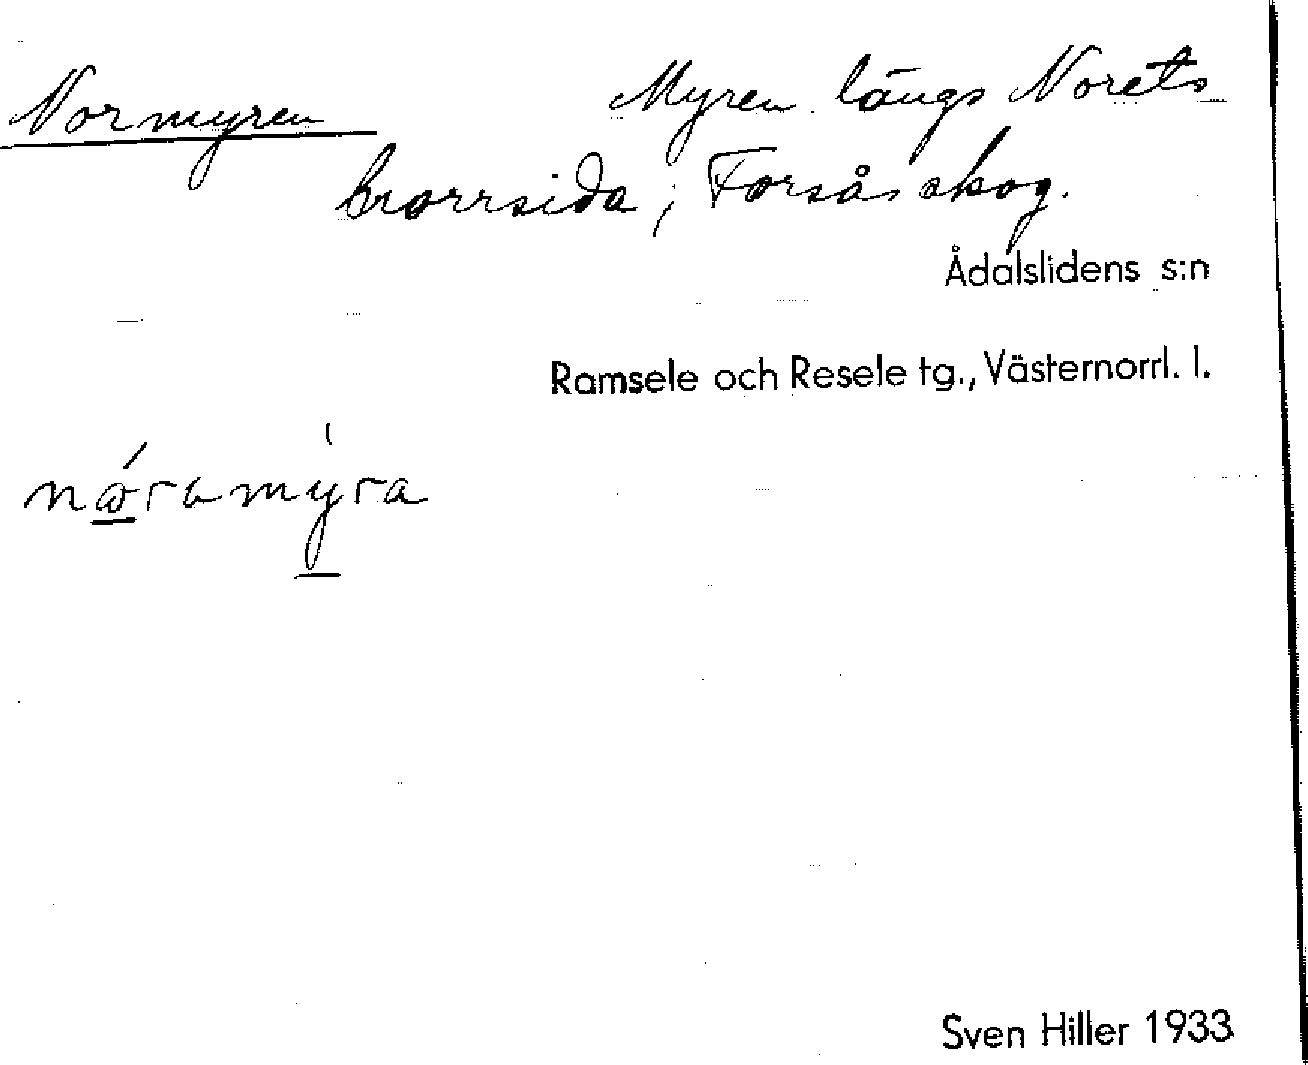 Normyren Myren längs Norets
norrsida; Forsås skog.
Ådalslidens s:n
Ramsele och Resele tg., Västernorrl. l.
Sven Hiller 1933